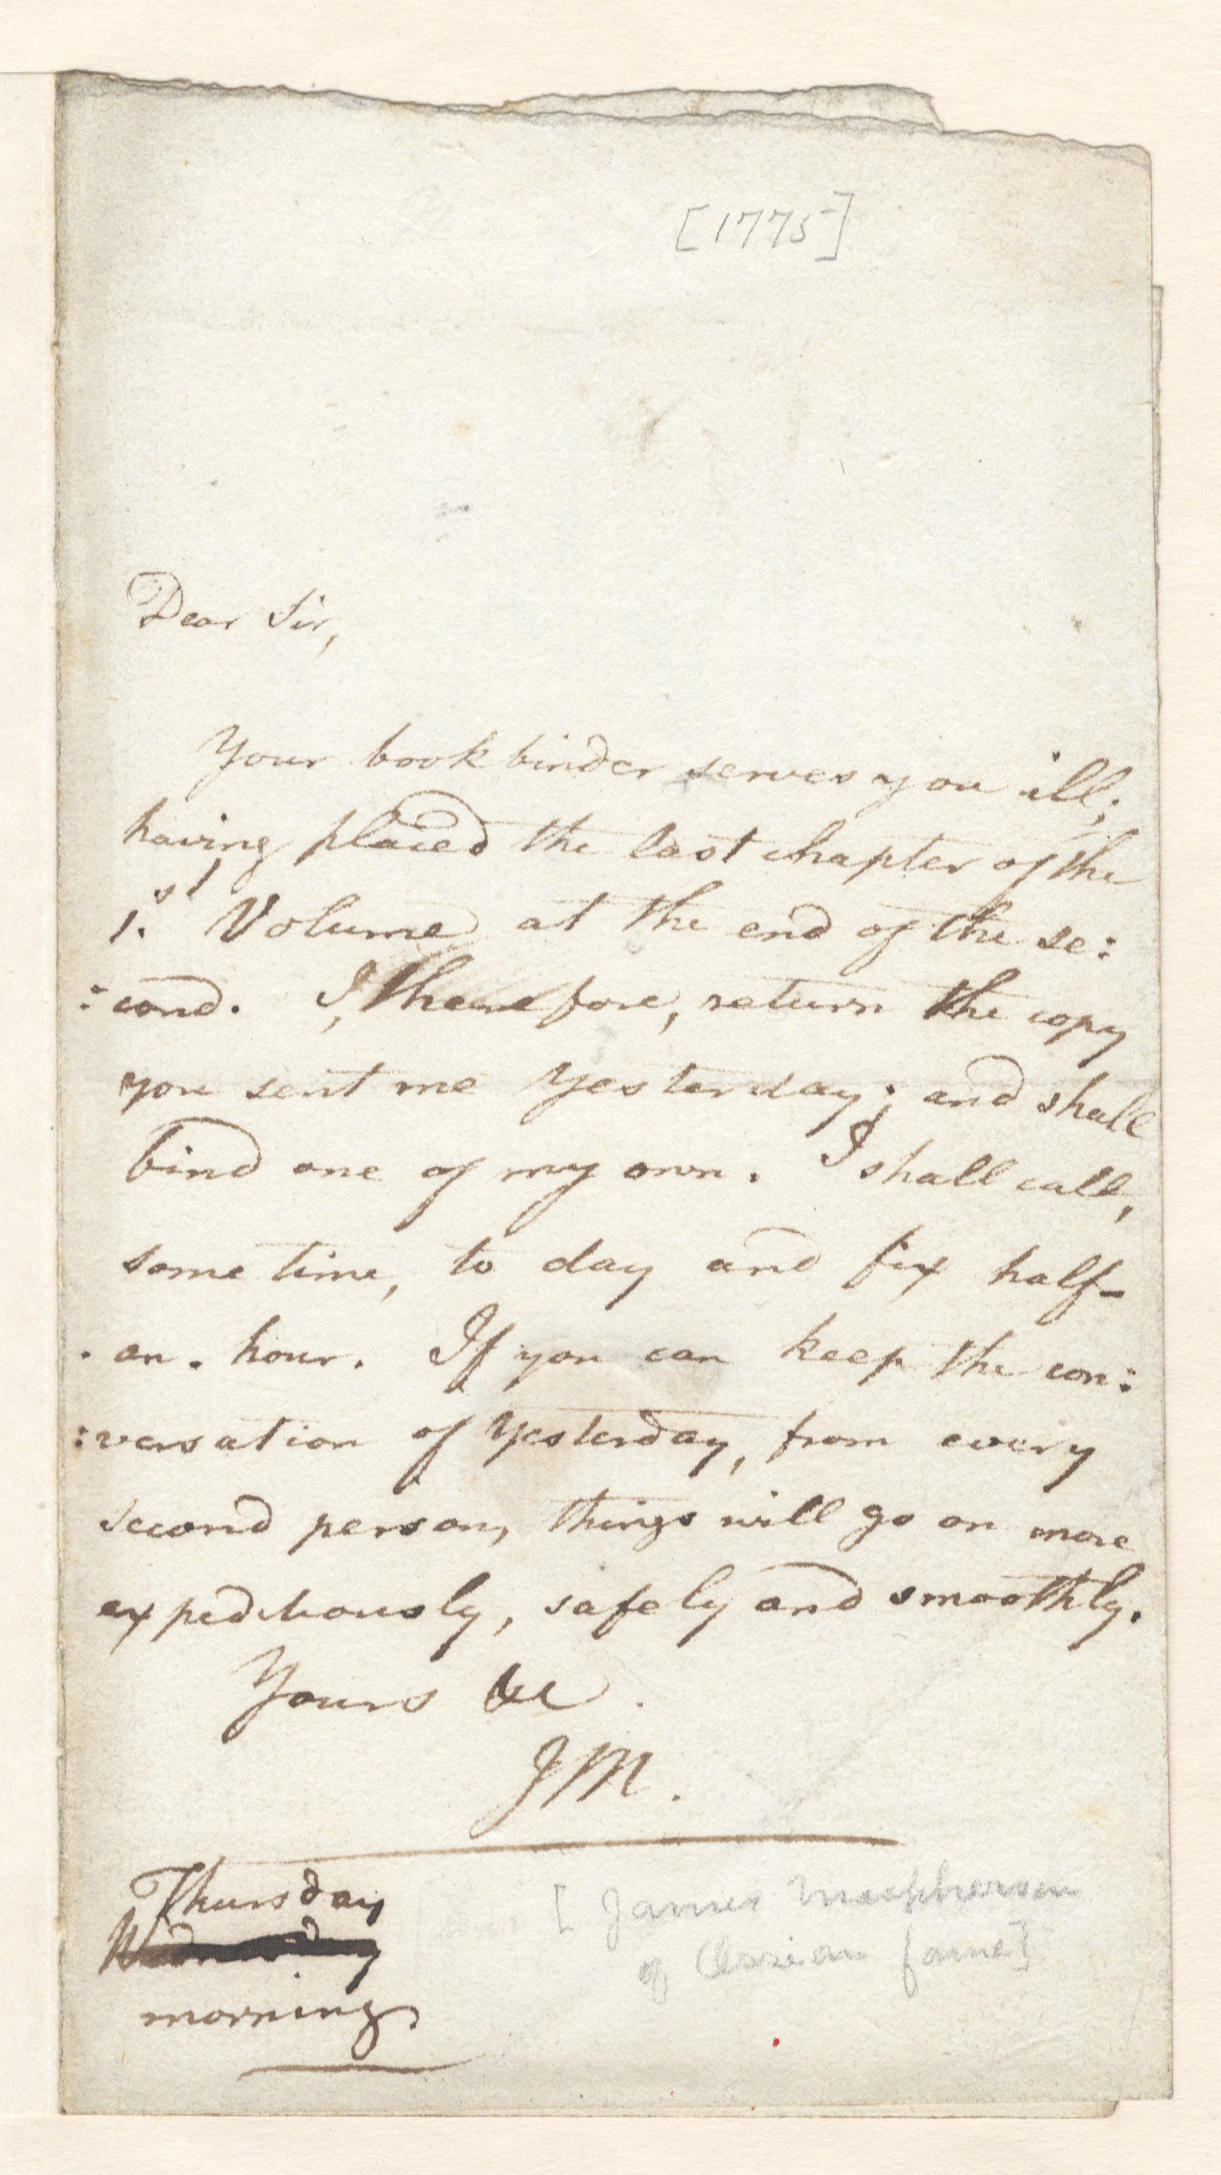 [1775]
Dear Sir,
Your book binder serves you ill;
having placed the last chapter of the
1.st Volume at the end of the se:
:cond. I, therefore, return the copy
you sent me Yesterday; and shall
bind one of my own. I shall call,
some time, to day and fix half-
- an - hour. If you can keep the con:
:versation of Yesterday, from every
second person, things will go on more
expeditiously, safely and smoothly.
Yours &c.
JM.
Thursday
Wednesday
morning
[James Macpherson
of Ossian fame]